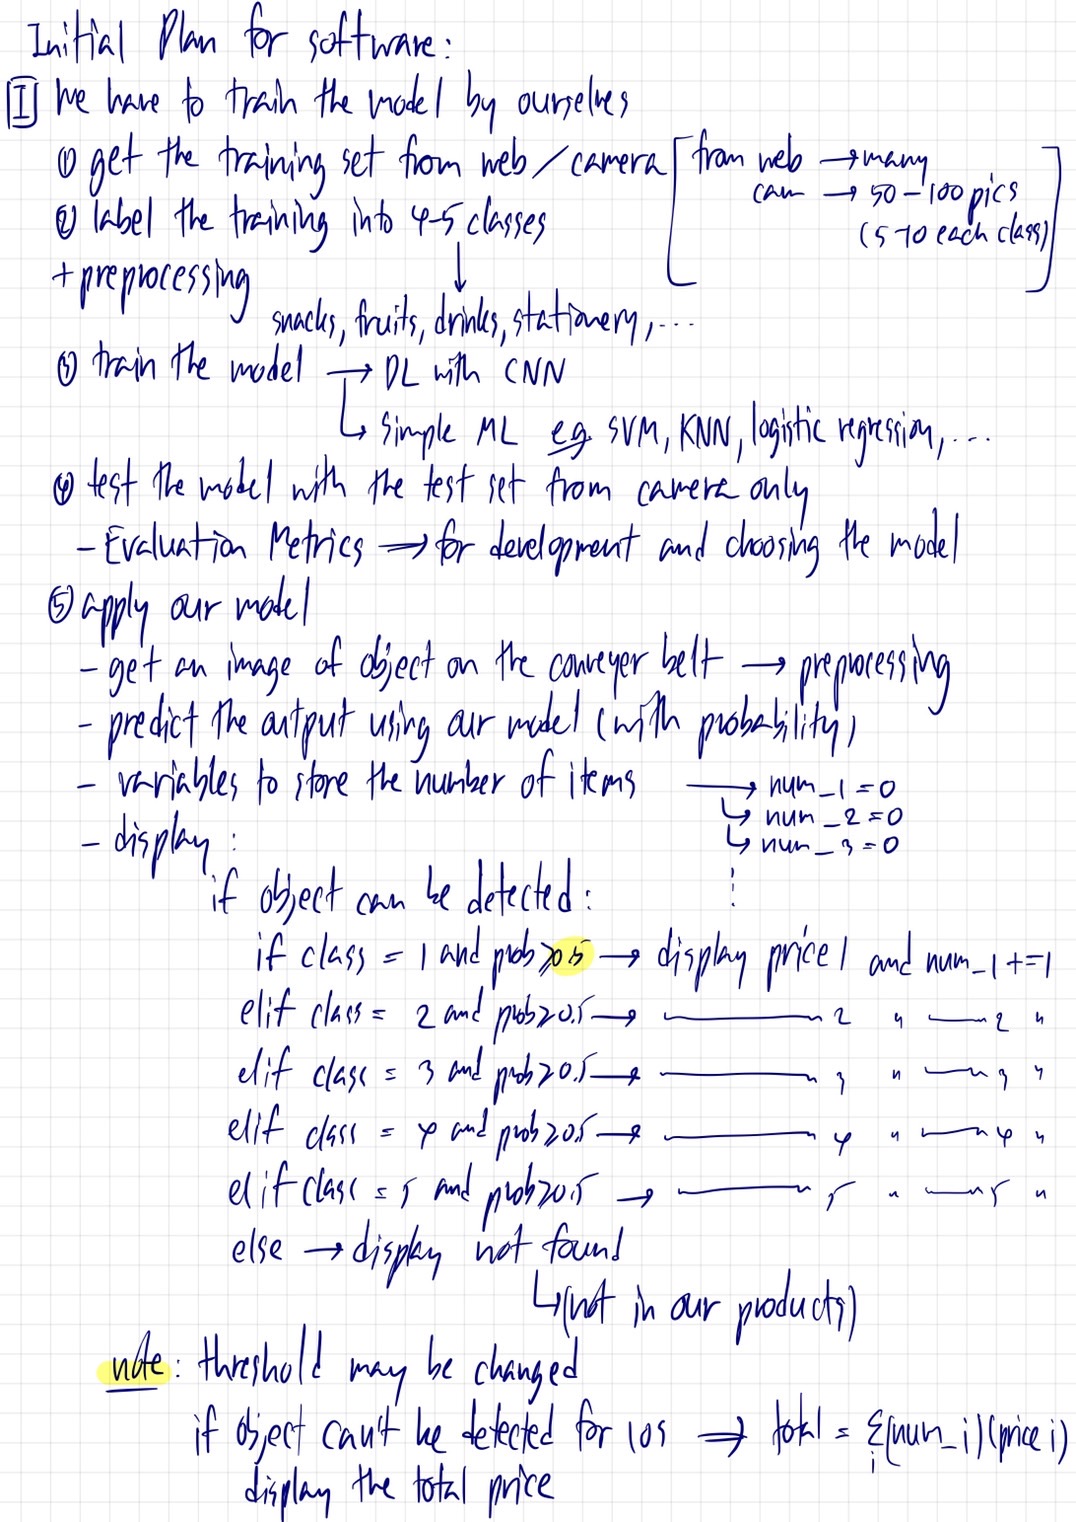 Initial Plan for software:
I We have to train the model by ourselves
① get the training set from web/camera [from web → many
cam → 50-100 pics
(5-10 each class)]
② label the training into 4-5 classes
+ preprocessing
snacks, fruits, drinks, stationery, ...
③ train the model → DL with CNN
↳ Simple ML eg SVM, KNN, logistic regression, ...
④ test the model with the test set from camera only
- Evaluation Metrics → for development and choosing the model
⑤ apply our model
- get an image of object on the conveyer belt → preprocessing
- predict the output using our model (with probability)
- variables to store the number of items → num_1=0
↳ num_2=0
↳ num_3=0
- display :
if object can be detected:
if class = 1 and prob ≥0.5 → display price 1 and num_1+=1
elif class = 2 and prob≥0.5 → ——— 2 " —— 2 "
elif class = 3 and prob≥0.5 → ——— 3 " —— 3 "
elif class = 4 and prob≥0.5 → ——— 4 " —— 4 "
elif class = 5 and prob≥0.5 → ——— 5 " —— 5 "
else → display not found
↳ (not in our products)
note: threshold may be changed
if object can't be detected for 10s → total = Σ(num_i)(price i)
i
display the total price